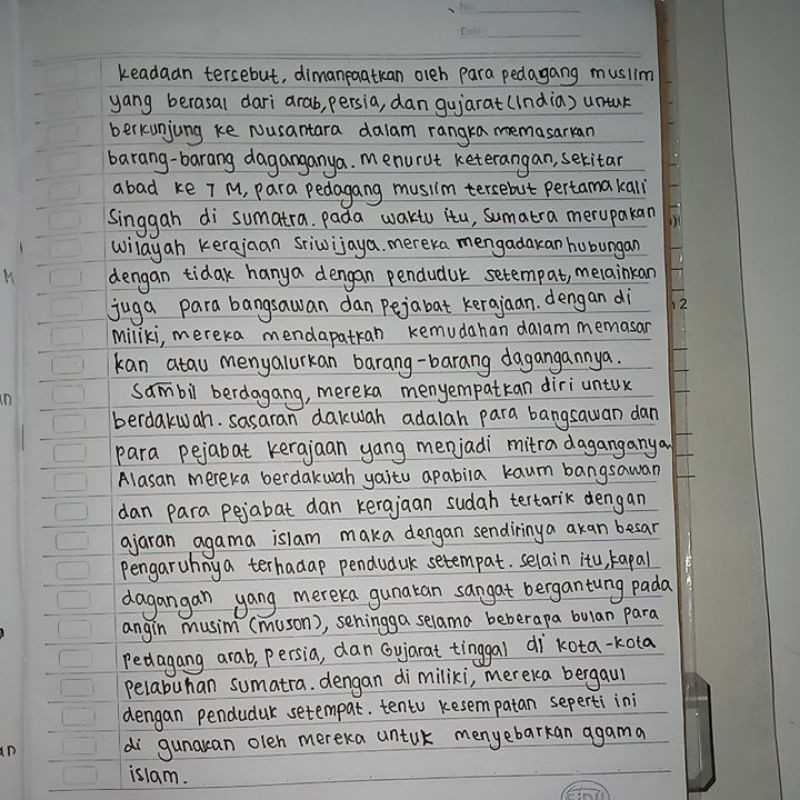 No
Date
keadaan tersebut, dimanfaatkan oleh para pedagang muslim
yang berasal dari arab, persia, dan gujarat (India) untuk
berkunjung ke Nusantara dalam rangka memasarkan
barang-barang daganganya. menurut keterangan, sekitar
abad ke 7 M, para pedagang muslim tersebut pertama kali
Singgah di sumatra. pada waktu itu, sumatra merupakan
wilayah kerajaan sriwijaya. mereka mengadakan hubungan
dengan tidak hanya dengan penduduk setempat, melainkan
juga para bangsawan dan pejabat kerajaan. dengan di
miliki, mereka mendapatkan kemudahan dalam memasar
kan atau menyalurkan barang-barang dagangannya.
Sambil berdagang, mereka menyempatkan diri untuk
berdakwah. sasaran dakwah adalah para bangsawan dan
para pejabat kerajaan yang menjadi mitra daganganya.
Alasan mereka berdakwah yaitu apabila kaum bangsawan
dan para pejabat dan kerajaan sudah tertarik dengan
ajaran agama islam maka dengan sendirinya akan besar
pengaruhnya terhadap penduduk setempat. selain itu, kapal
dagangan yang mereka gunakan sangat bergantung pada
angin musim (muson), sehingga selama beberapa bulan para
pedagang arab, persia, dan Gujarat tinggal di kota-kota
pelabuhan sumatra. dengan di miliki, mereka bergaul
dengan penduduk setempat. tentu kesempatan seperti ini
di gunakan oleh mereka untuk menyebarkan agama
islam.
SIDU